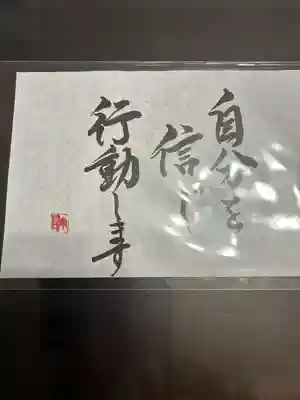 自分を
信じ
行動します